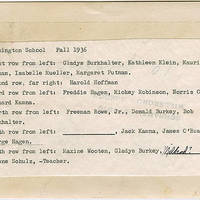 ington School Fall 1936
st row from left: Gladys Burkhalter, Kathleen Klein, Mauri
man, Isabelle Mueller, Margaret Putnam.
ond row, far right: Harold Hoffman
rd row from left: Freddie Hagen, Rickey Robinson, Norris C
ard Kamma.
rth row from left: Freeman Rowe, Jr., Donald Burkey, Bob
khalter,
th row from left: ____________, Jack Kamma, James O'
rge Hagen,
th row from left: Maxine Wooten, Gladys Burkey, Mildred?
ene Schulz, -Teacher.